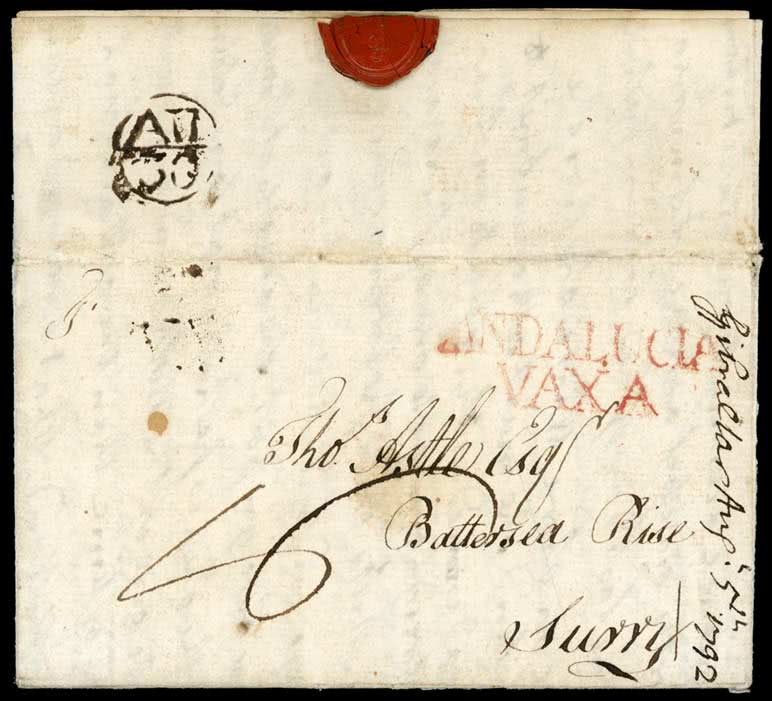 AU
30
ANDALUCIA
VAXA
Tho.s Astle Esq.r
Battersea Rise
Surry
Gibraltar Aug.t 5th 1792